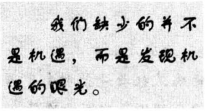 我们缺少的并不
是机遇，而是发现机
遇的眼光。